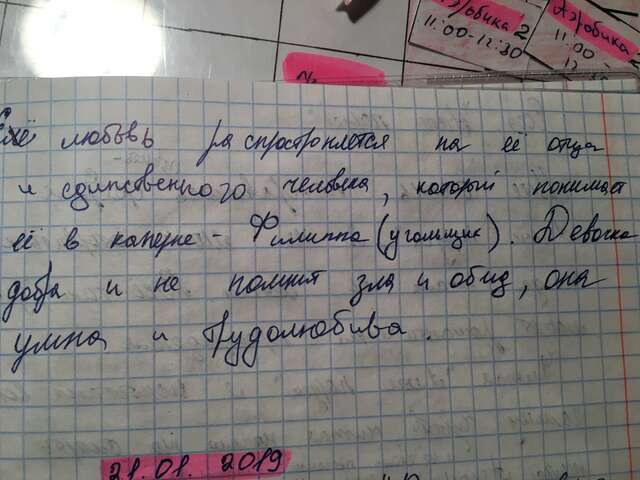 Аэробика 2
11:00-12:30
Аэробика 2
11:00 -
12:30
Её любовь распространяется на её отца
и единственного человека, который понимает
её в каперне - Филиппа (угольщик). Девочка
добра и не помнит зла и обид, она
умна и трудолюбива.
21.01. 2019